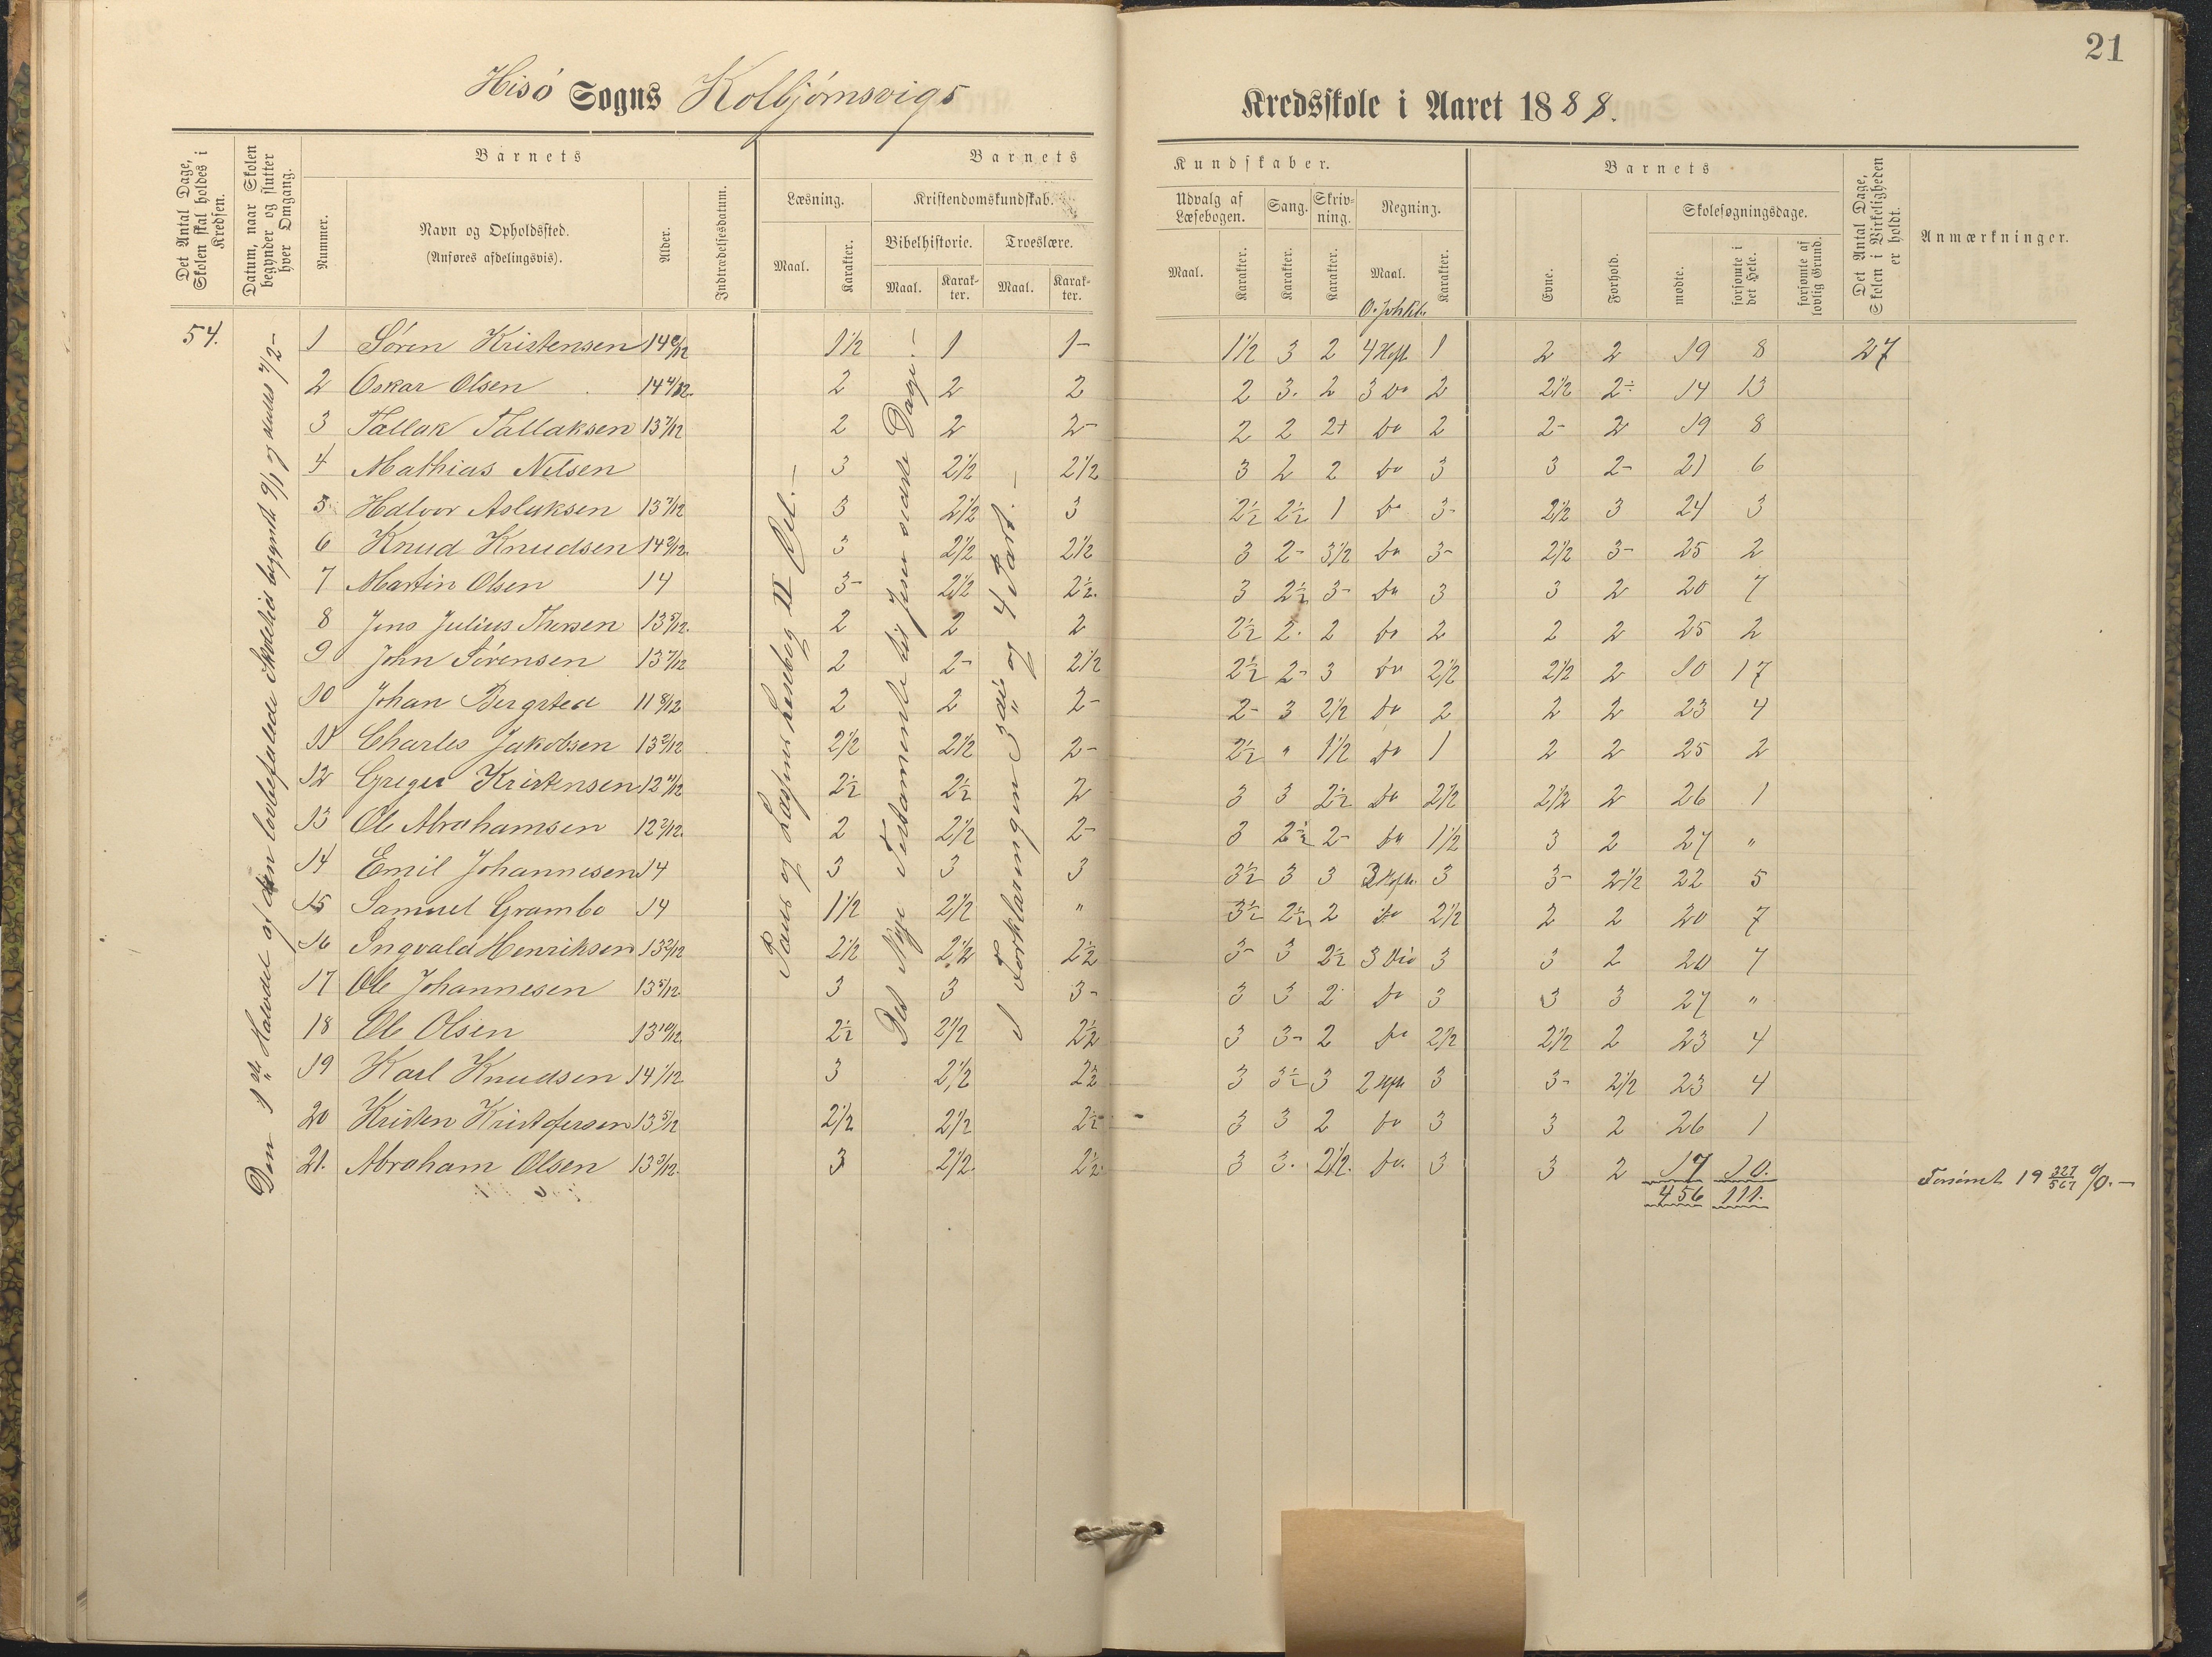 21
Hisö Sogns Kolbjörnsvigs Kredsskole i Aaret 1888.
Det Antal Dage, Skolen skal holdes i Kredsen.
Datum, naar Skolen begynder og slutter hver Omgang.
Barnets
Nummer.
Navn og Opholdssted.
(Anføres afdelingsvis).
Alder.
Indtrædelsesdatum.
Barnets Kundskaber.
Læsning.
Maal. Karakter.
Kristendomskundskab.
Bibelhistorie. Troeslære.
Maal. Karakter. Maal. Karakter.
Udvalg af Læsebogen. Sang. Skrivning. Regning.
Maal. Karakter. Karakter. Karakter. Maal. Karakter.
Barnets
Evne. Forhold.
Skolesøgningsdage.
mødte. forsømte i det Hele. forsømte af lovlig Grund.
Det Antal Dage, Skolen i Virkeligheden er holdt.
Anmærkninger.
54.
Den 1ste Halvdel af den lovbefalede Skoletid begyndt 9/1 og sluttet 7/2-
II Del.-
Det Nye Testamente til Jesu sidste Dage.-
Forklaringen 3die og 4 Part.-
1 Sören Kristensen 1½ 1 1- 1½ 3 2 4 Heft 1 2 2 19 8 27
2 Oskar Olsen 14 4/12. 2 2 2 2 3. 2 3 Do 2 2½ 2÷ 14 13
3 Tallak Tallaksen 13 7/12 2 2 2- 2 2 2+ Do 2 2- 2 19 8
4 Mathias Nilsen 3 2½ 2½ 3 2 2 Do 3 3 2- 21 6
5 Halvor Aslaksen 13 7/12 3 2½ 3 2½ 2½ 1 Do 3- 2½ 3 24 3
6 Knud Knudsen 14 2/12. 3 2½ 2½ 3 2- 3½ Do 3- 2½ 3- 25 2
7 Martin Olsen 14 3- 2½ 2½. 3 2½ 3- Do 3 3 2 20 7
8 Jens Julius 13 5/12. 2 2 2 2½ 2. 2 Do 2 2 2 25 2
9 John Sörensen 13 7/12 2 2- 2½ 2½ 2- 3 Do 2½ 2½ 2 10 17
10 Johan Bergsted 11 8/12 2 2 2- 2- 3 2½ Do 2 2 2 23 4
11 Charles Jakobsen 13 2/12 2½ 2½ 2- 2½ " 1½ Do 1 2 2 25 2
12 Kristensen 12 11/12 2½ 2½ 2 3 3 2½ Do 2½ 2½ 2 26 1
13 Ole Abrahamsen 12 2/12. 2 2½ 2- 3 2½ 2- Do 1½ 3 2 27 "
14 Emil Johannesen 14 3 3 3 3½ 3 3 3 Heft. 3 3- 2½ 22 5
15 Samuel Grambo 14 1½ 2½ " 3½ 2½ 2 Do 2½ 2 2 20 7
16 Ingvald Henriksen 13 2/12 2½ 2½ 2½ 3- 3 2½ 3 Dio 3 3 2 20 7
17 Ole Johannesen 13 5/12. 3 3 3- 3 3 2 Do 3 3 3 27 "
18 Ole Olsen 13 10/12. 2½ 2½ 2½ 3 3- 2 Do 2½ 2½ 2 23 4
19 Karl Knudsen 14 1/12 3 2½ 2½ 3 3½ 3 2 Hft 3 3- 2½ 23 4
20 Kristen Kristofersen 13 5/12 2½ 2½ 2½ 3 3 2 Do 3 3 2 26 1
21. Abraham Olsen 13 3/12. 3 2½. 2½. 3 3. 2½. Do. 3 3 2 17 10.
456 111.
Forsömt 19 327/567 %.-